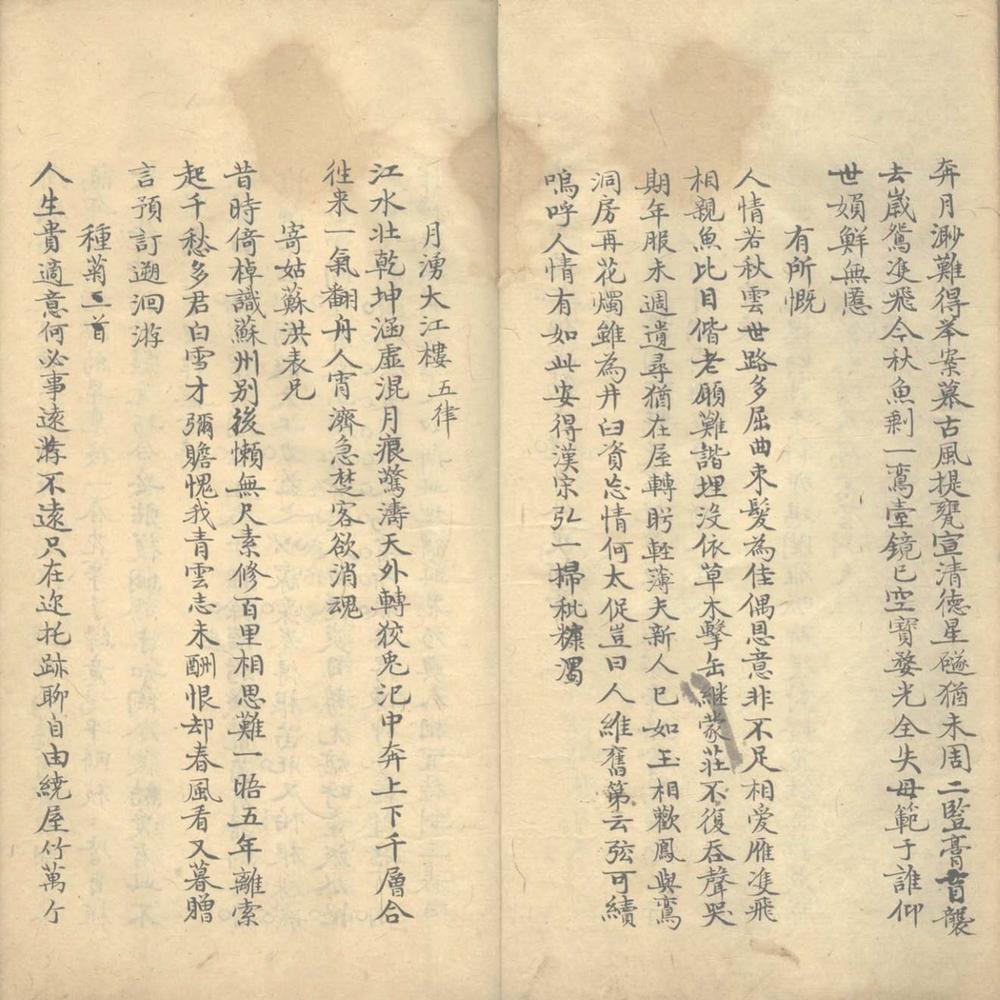 奔月渺難得举案慕古風提甕宣清德星磁猶未周二監膏肓襲
去歲鴛䨇飛今秋魚剩一鸞臺鏡已空寶婺光全失母範于誰仰
世媍鮮無慝
有所慨
人情若秋雲世路多屈曲束髮為佳偶恩意非不足相愛雁䨇飛
相親魚比目偕老願難諧埋没依草木擊缶継蒙莊不復吞聲哭
期年服未週遺尋猶在屋轉盻輊薄夫新人已如玉相歡鳳與鸞
洞房再花燭雖為井臼資忘情何太促豈曰人維舊第云弦可續
嗚呼人情有如此安得漢宗弘一掃秕糠濁
月湧大江樓 五律
江水壮乾坤涵虛混月痕驚濤天外轉狡兎汜中奔上下千層合
徃来一氣翻舟人宵濟急楚客欲消魂
寄姑蘇洪表兄
昔時倚棹識蘇州别後懶無尺素修百里相思難一晤五年離索
起千愁多君白雪才彌贍愧我青雲志未酬恨却春風看又暮贈
言預訂遡洄游
種菊二首
人生貴適意何必事遠游不遠只在迩托跡聊自由繞屋竹萬个